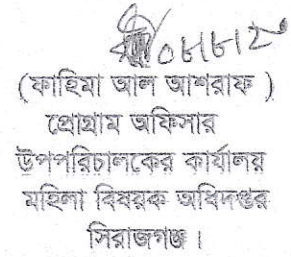 (ফাহিমা আল আশরাফ )
প্রোগ্রাম অফিসার
উপপরিচালকের কার্যালয়
মহিলা বিষয়ক অধিদপ্তর
সিরাজগঞ্জ।